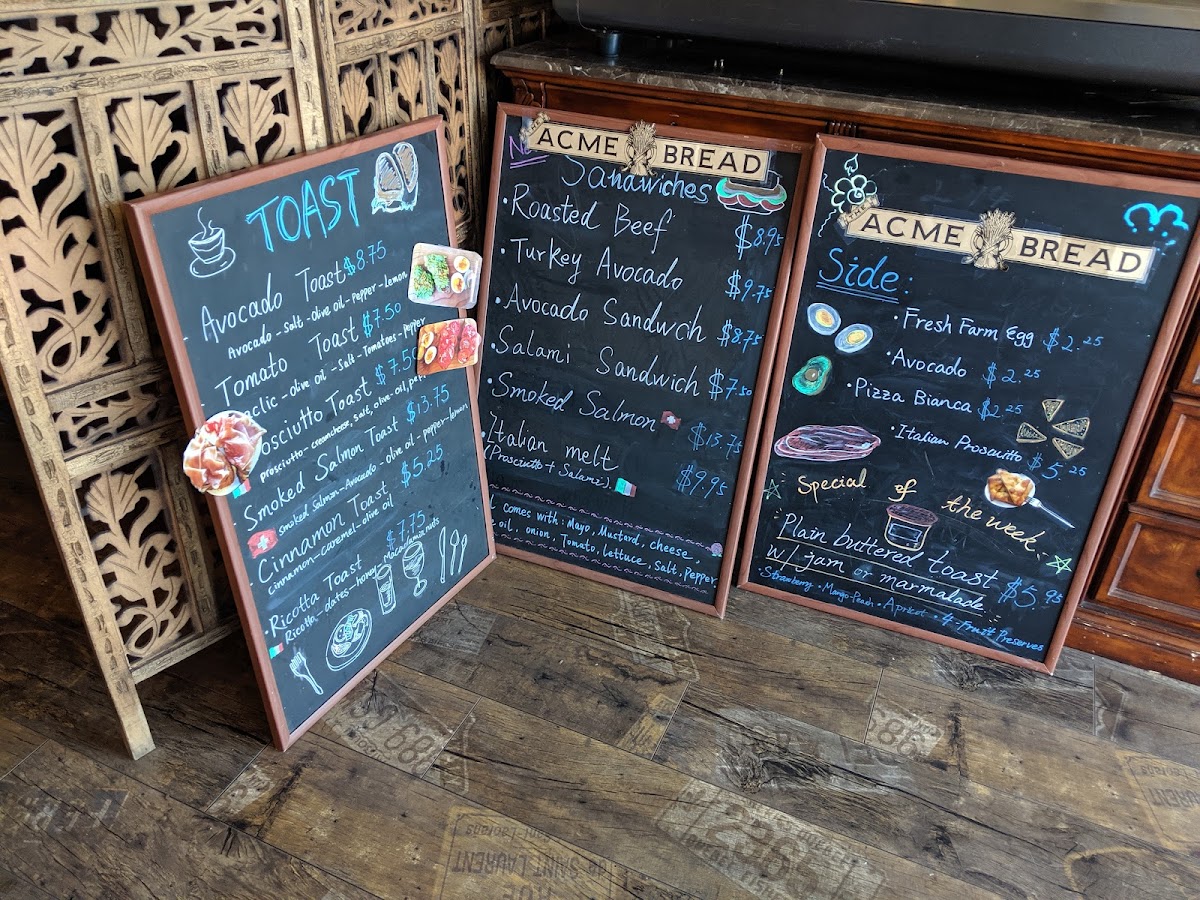 TOAST
Avocado Toast $8.75
Avocado-salt-olive oil-pepper-lemon
Tomato Toast $7.50
-olive oil-salt-Tomatoes-pepper
Toast $7.50
prosciutto-creamcheese, salt, olive-oil,
Smoked Salmon Toast $13.75
smoked Salmon-Avocado-olive oil-pepper-lemon
Cinnamon Toast $5.25
cinnamon-caramel-olive oil
Ricotta Toast $7.75
Ricotta-dates-honey-Macadamia nuts
ACME BREAD
Sandwiches
• Roasted Beef $8.95
• Turkey Avocado $9.75
• Avocado Sandwch $8.75
• Salami Sandwich $7.50
• Smoked Salmon $13.75
• Italian melt $9.95
(Prosciutto + Salami).
comes with: Mayo, Mustard, cheese
oil, onion, Tomato, lettuce, Salt, Pepper
THE ACME BREAD
Side:
• Fresh Farm Egg $2.25
• Avocado $2.25
• Pizza Bianca $2.25
• Italian Prosciutto $5.25
Special of the week.
Plain buttered toast
w/ jam or marmalade $5.95
Strawberry • Mango-Peach • Apricot • 4-Fruit Preserves
SAINT LAURENT